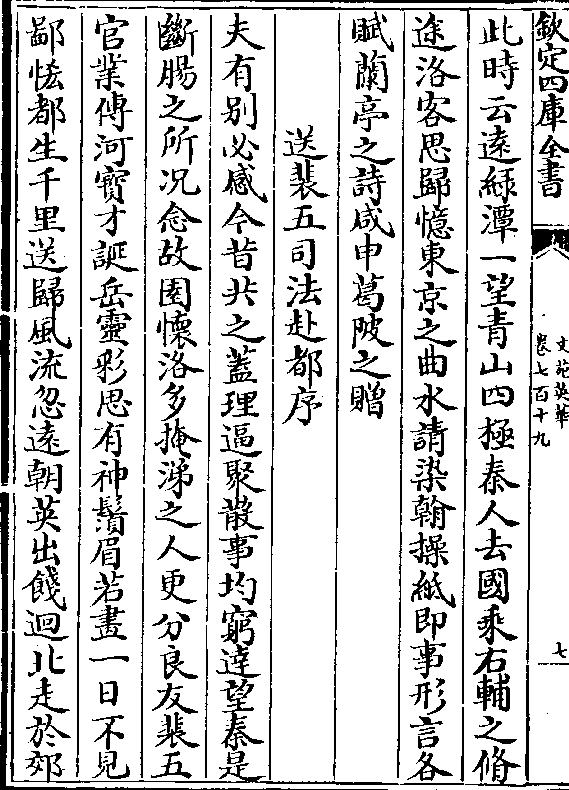 欽定四庫全書
文苑英華
卷七百十九
七
此時云遠緑潭一望青山四極秦人去國乘右輔之脩
途洛客思歸憶東京之曲水請染翰操紙即事形言各
賦蘭亭之詩咸申葛陂之贈
送裴五司法赴都序
夫有别必感今昔共之蓋理逼聚散事均窮逹望秦是
斷腸之所况念故園懷洛多掩涕之人更分良友裴五
官業傳河寶才誕岳靈彩思有神鬚眉若畫一日不見
鄙恡都生千里送歸風流忽遠朝英出餞迴北走於郊